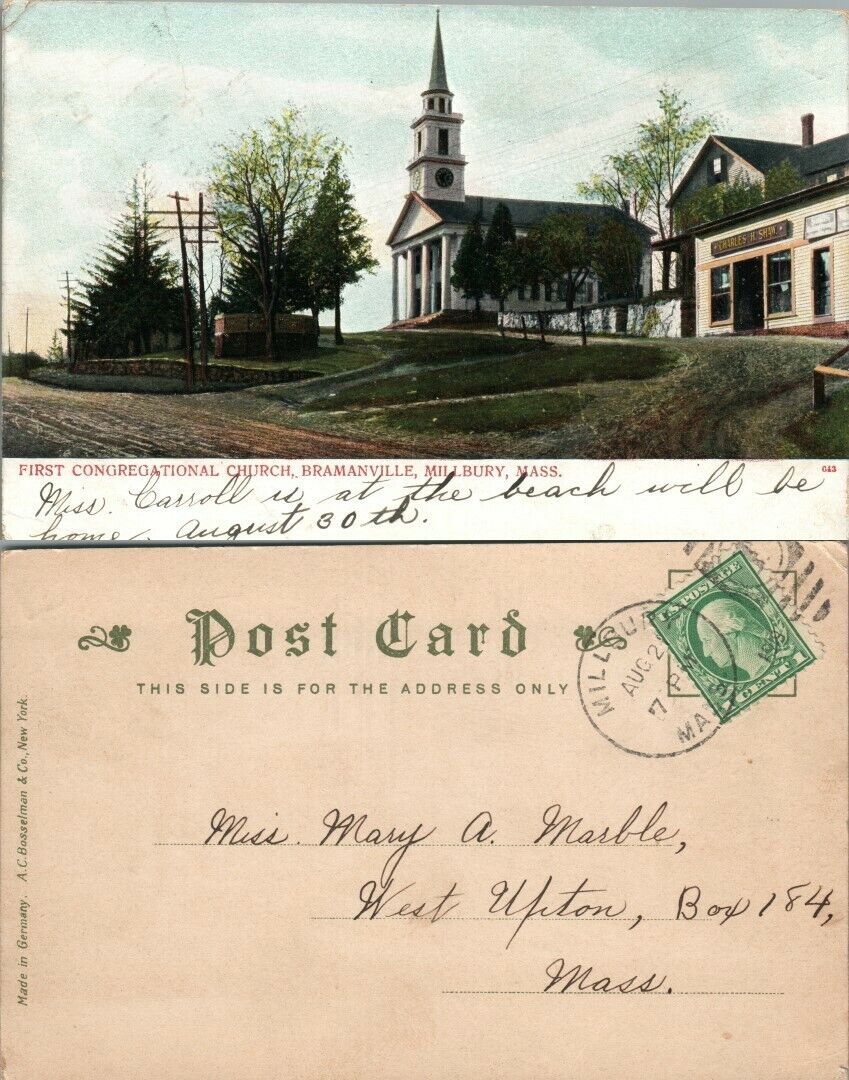 CHARLES H. SHAW.
FIRST CONGREGATIONAL CHURCH, BRAMANVILLE, MILLBURY, MASS.
643
Miss. Carroll is at the beach will be
home, August 30th.
Post Card
THIS SIDE IS FOR THE ADDRESS ONLY
U.S. POSTAGE
1 CENT 1
AUG 2
7 PM
MASS
Made in Germany. A.C. Bosselman & Co., New York.
Miss. Mary A. Marble,
West Upton, Box 184,
Mass.